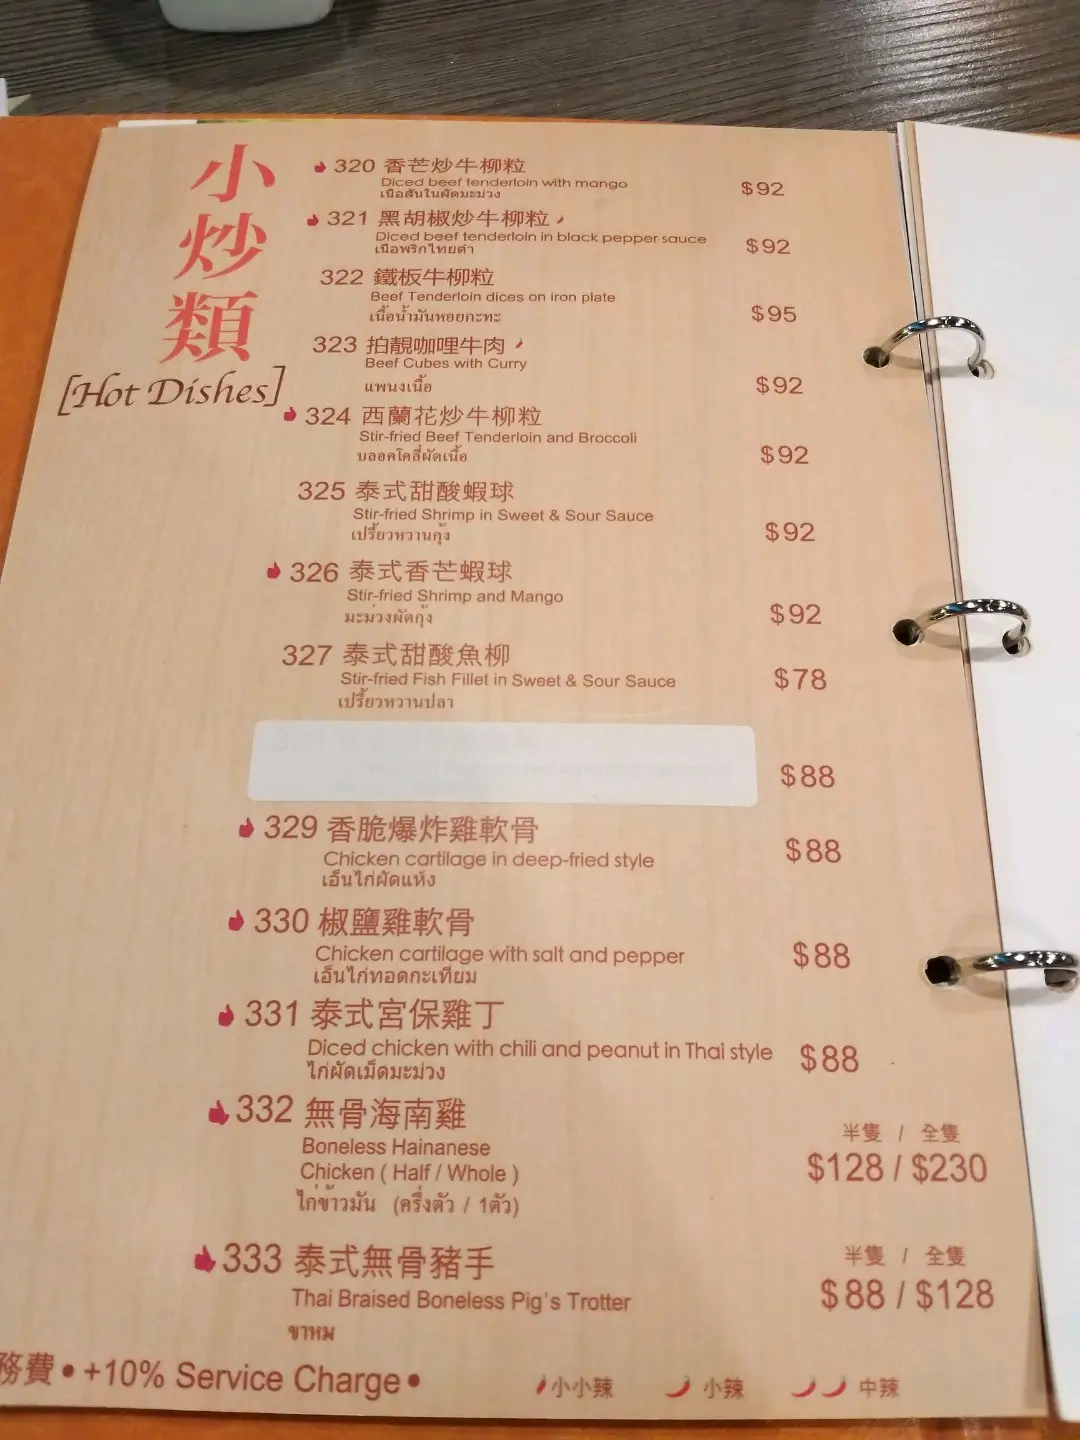 小炒類
[Hot Dishes]
320 香芒炒牛柳粒
Diced beef tenderloin with mango
เนื้อสันในผัดมะม่วง
$92
321 黑胡椒炒牛柳粒
Diced beef tenderloin in black pepper sauce
เนื้อพริกไทยดำ
$92
322 鐵板牛柳粒
Beef Tenderloin dices on iron plate
เนื้อน้ำมันหอยกะทะ
$95
323 拍靚咖哩牛肉
Beef Cubes with Curry
แพนงเนื้อ
$92
324 西蘭花炒牛柳粒
Stir-fried Beef Tenderloin and Broccoli
บลอคโคลี่ผัดเนื้อ
$92
325 泰式甜酸蝦球
Stir-fried Shrimp in Sweet & Sour Sauce
เปรี้ยวหวานกุ้ง
$92
326 泰式香芒蝦球
Stir-fried Shrimp and Mango
มะม่วงผัดกุ้ง
$92
327 泰式甜酸魚柳
Stir-fried Fish Fillet in Sweet & Sour Sauce
เปรี้ยวหวานปลา
$78
$88
329 香脆爆炸雞軟骨
Chicken cartilage in deep-fried style
เอ็นไก่ผัดแห้ง
$88
330 椒鹽雞軟骨
Chicken cartilage with salt and pepper
เอ็นไก่ทอดกะเทียม
$88
331 泰式宮保雞丁
Diced chicken with chili and peanut in Thai style
ไก่ผัดเม็ดมะม่วง
$88
332 無骨海南雞
Boneless Hainanese
Chicken ( Half / Whole )
ไก่ข้าวมัน (ครึ่งตัว / 1ตัว)
半隻 / 全隻
$128 / $230
333 泰式無骨豬手
Thai Braised Boneless Pig's Trotter
ขาหม
半隻 / 全隻
$88 / $128
務費 • +10% Service Charge •
小小辣 小辣 中辣